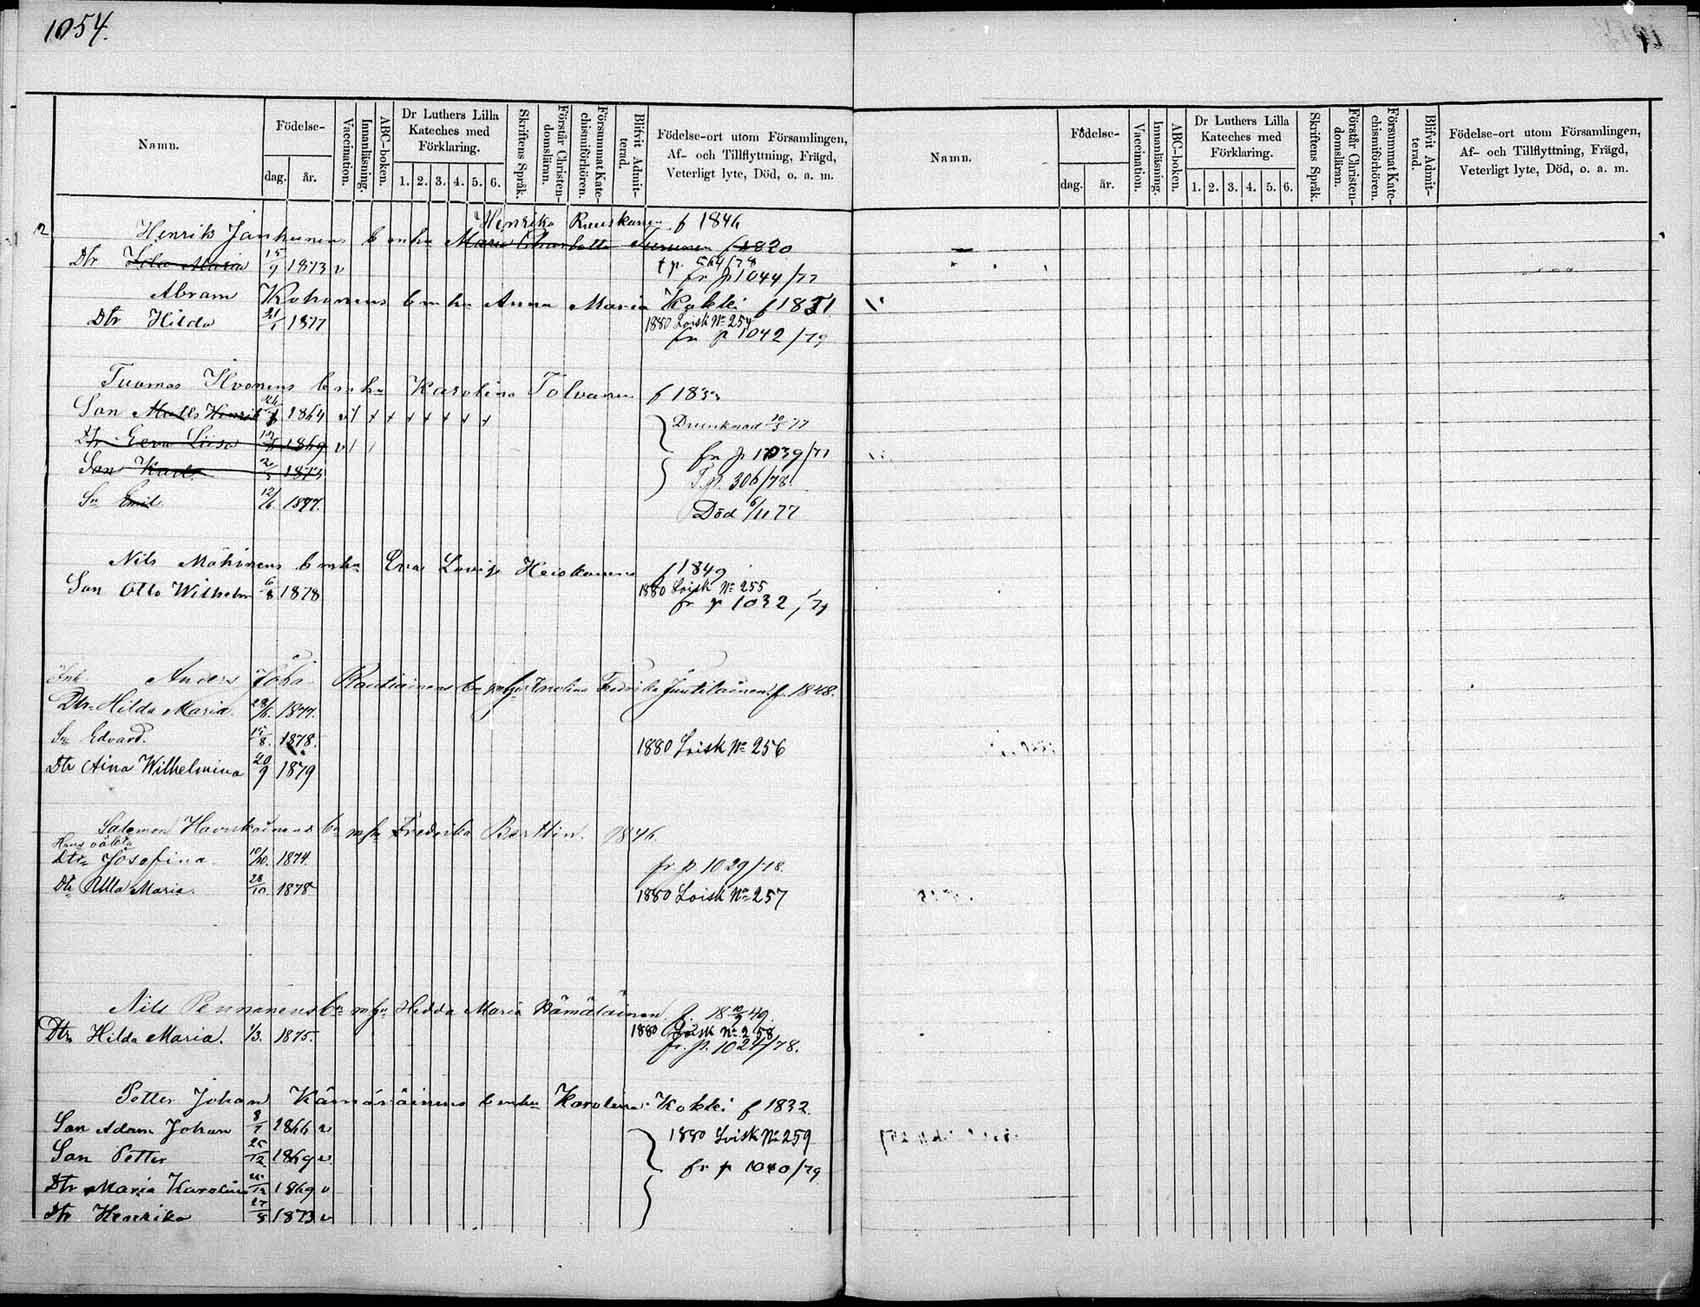 1054.
Namn. Födelse- dag. år. Vaccination. Innanläsning. ABC-boken. Dr Luthers Lilla Kateches med Förklaring. 1. 2. 3. 4. 5. 6. Skriftens Språk. Förstår Christendomsläran. Försummat Katechismiförhören. Blifvit Admitterad. Födelse-ort utom Församlingen, Af- och Tillflyttning, Frägd, Veterligt lyte, Död, o. a. m.
Henrika Ruuskanen f 1846
2 Henrik Janhunens b m hu Maria Charlotta f 1820
t p. 564/78
Dtr Maria 15/9 1873 v fr p 1044/77
Abram Kohonens b m hu Anna Maria Kokki f 1851
Dtr Hilda 21/1 1877 1880 Loisk No 254
fr p 1042/79
Tuomas Ilvonens b m hu Karolina Tolvanen f 1833
Son Matts Henrik 1864 v 1 + + + + + + + Drunknad 10/5 77
Dtr Eeva Liisa 1869 v 1 1 fr p 1039/71
Son Karl 2/3 1873 T. p. 306/78
Sn Emil 12/6 1877. Död 6/11 77
Nils Makinens b m hu Eva Lovisa Heiskanen f 1849
Son Otto Wilhelm 6/8 1878 1880 Loisk No 255
fr p 1032/79
Inh Anders Joha Rautiainens b m hu Karolina Fredrika Juutilainen f. 1848.
Dtr Hilda Maria. 28/6. 1877.
Sn Edvard. 15/8. 1878. 1880 Loisk No 256
Dtr Aina Wilhelmina 20/9 1879
Salomon Havukainens bn m hu Fredrika Barttin. 1846.
Hans oäkta
Dtr Josefina. 10/10. 1874. fr p 1029/78.
Dtr Ulla Maria. 28/10. 1878 1880 Loisk No 257
Nils Pennanens bn m hu Hedda Maria Hämäläinen f. 1849.
Dtr Hilda Maria. 1/3. 1875. 1880 Loisk No 258
fr. p. 1024/78.
Petter Johan Kämäräinens b m hu Karolina Kokki f 1832.
Son Adam Johan 1866 v 1880 Loisk No 259
Son Petter 25/12 1869 v fr p 1040/79
Dtr Maria Karolina 25/12 1869 v
Dtr Henrika 27/8 1873 v
Namn. Födelse- dag. år. Vaccination. Innanläsning. ABC-boken. Dr Luthers Lilla Kateches med Förklaring. 1. 2. 3. 4. 5. 6. Skriftens Språk. Förstår Christendomsläran. Försummat Katechismiförhören. Blifvit Admitterad. Födelse-ort utom Församlingen, Af- och Tillflyttning, Frägd, Veterligt lyte, Död, o. a. m.